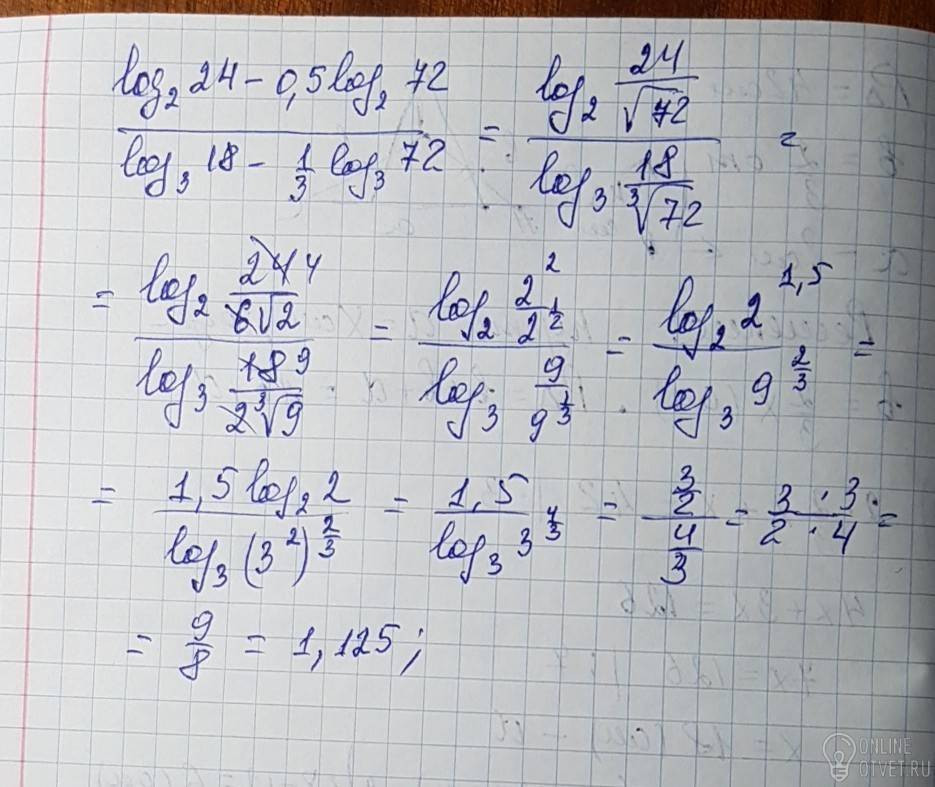 (log₂ 24 − 0,5 log₂ 72) / (log₃ 18 − 1/3 log₃ 72) = (log₂ 24/√72) / (log₃ 18/∛72) =
= (log₂ 24 4/6√2) / (log₃ 18 9/2∛9) = (log₂ 2²/2^(1/2)) / (log₃ 9/9^(1/3)) = (log₂ 2^1,5) / (log₃ 9^(2/3)) =
= (1,5 log₂ 2) / (log₃ (3²)^(2/3)) = 1,5 / (log₃ 3^(4/3)) = (3/2) / (4/3) = (3 · 3) / (2 · 4) =
= 9/8 = 1,125;
4x + 3x = 126
7x = 126
ONLINE
OTVET.RU